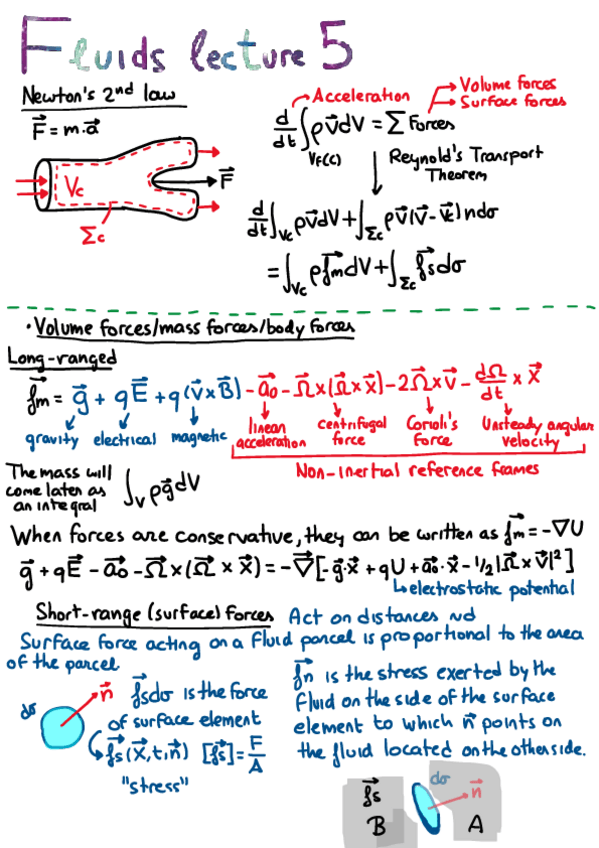 Fluids lecture 5
Newton's 2nd law
F⃗ = m.a⃗
Vc
F⃗
Σc
Acceleration
Volume forces
Surface forces
d/dt ∫_{Vf(t)} ρv⃗dV = Σ Forces
Reynold's Transport
Theorem
d/dt ∫_{Vc} ρv⃗dV + ∫_{Σc} ρv⃗(v⃗ - v⃗c)ndσ
= ∫_{Vc} ρf⃗m dV + ∫_{Σc} f⃗s dσ
• Volume forces/mass forces/body forces
Long-ranged
f⃗m = g⃗ + qE⃗ + q(v⃗ x B⃗) - a⃗o - Ω⃗ x (Ω⃗ x x⃗) - 2Ω⃗ x v⃗ - dΩ⃗/dt x x⃗
gravity electrical magnetic linear acceleration centrifugal force Corioli's Force Unsteady angular velocity
Non-inertial reference frames
The mass will
come later as
an integral
∫_V ρg⃗dV
When forces are conservative, they can be written as f⃗m = -∇U
g⃗ + qE⃗ - a⃗o - Ω⃗ x (Ω⃗ x x⃗) = -∇⃗[-g⃗·x⃗ + qU + a⃗o·x⃗ - 1/2|Ω⃗ x v⃗|²]
↳electrostatic potential
Short-range (surface) forces Act on distances ~d
Surface force acting on a fluid parcel is proportional to the area
of the parcel
dσ
n⃗
f⃗sdσ is the force
of surface element
f⃗s(x⃗,t,n⃗) [f⃗s] = F/A
"stress"
f⃗n is the stress exerted by the
fluid on the side of the surface
element to which n⃗ points on
the fluid located on the otherside.
f⃗s
B
dσ
n⃗
A